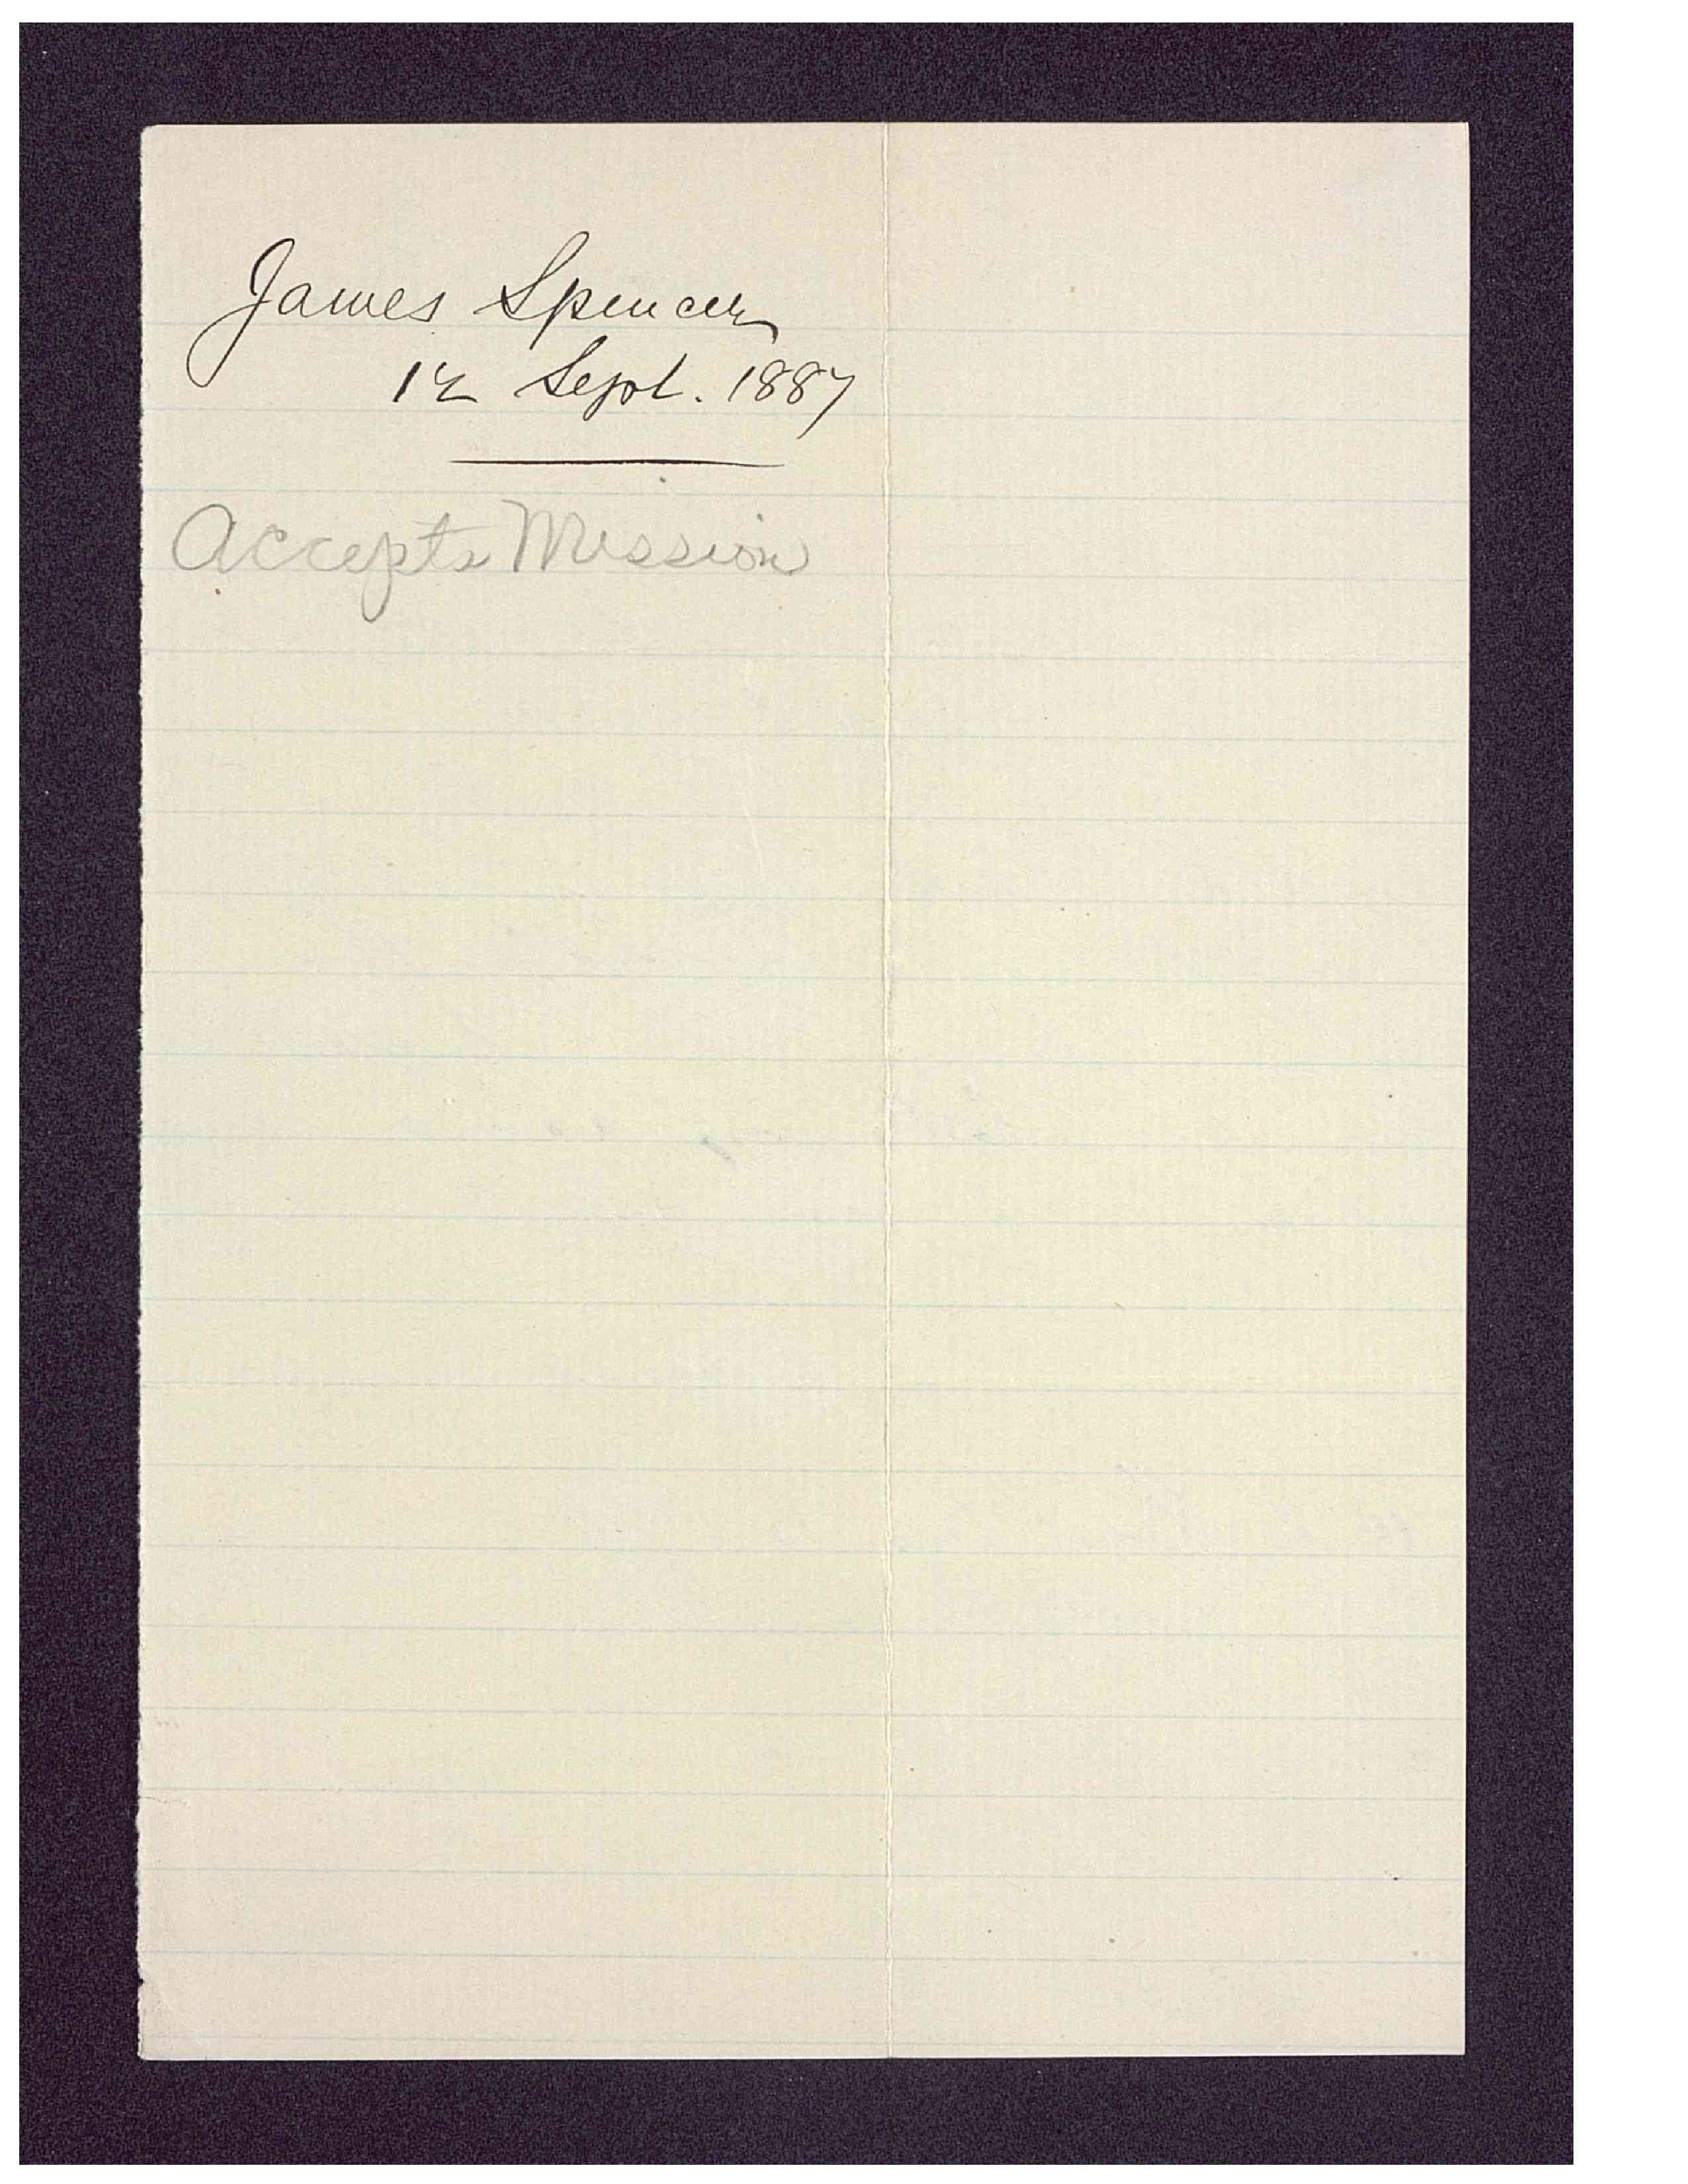 James Spencer
12 Sept. 1887
Accepts Mission